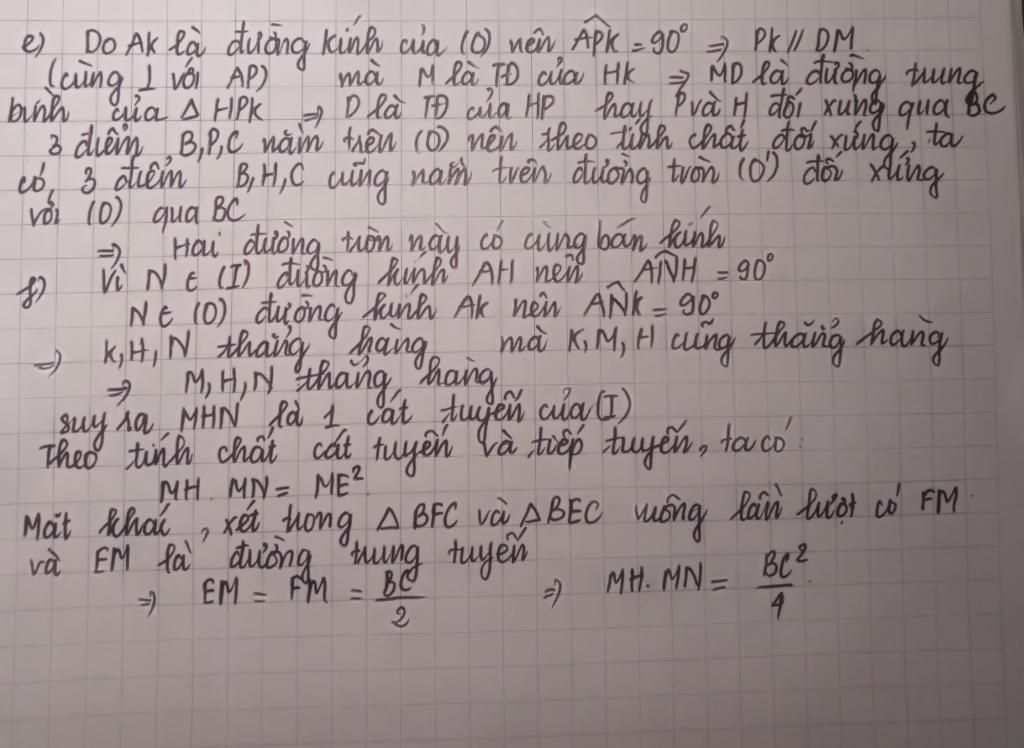 e) Do AK là đường kính của (O) nên \widehat{APK} = 90° ⇒ PK // DM
(cùng ⊥ với AP) mà M là TĐ của HK ⇒ MD là đường trung
bình của Δ HPK ⇒ D là TĐ của HP hay P và H đối xứng qua BC
3 điểm B,P,C nằm trên (O) nên theo tính chất đối xứng, ta
có 3 điểm B,H,C cũng nằm trên đường tròn (O') đối xứng
với (O) qua BC
⇒ Hai đường tròn này có cùng bán kính
f) Vì N ∈ (I) đường kính AH nên \widehat{ANH} = 90°
N ∈ (O) đường kính AK nên \widehat{ANK} = 90°
⇒ K,H,N thẳng hàng mà K,M,H cũng thẳng hàng
⇒ M,H,N thẳng hàng
suy ra MHN là 1 cát tuyến của (I)
Theo tính chất cát tuyến và tiếp tuyến, ta có:
MH. MN = ME²
Mặt khác, xét trong Δ BFC và Δ BEC vuông lần lượt có FM
và EM là đường trung tuyến
⇒ EM = FM = BC/2 ⇒ MH. MN = BC²/4